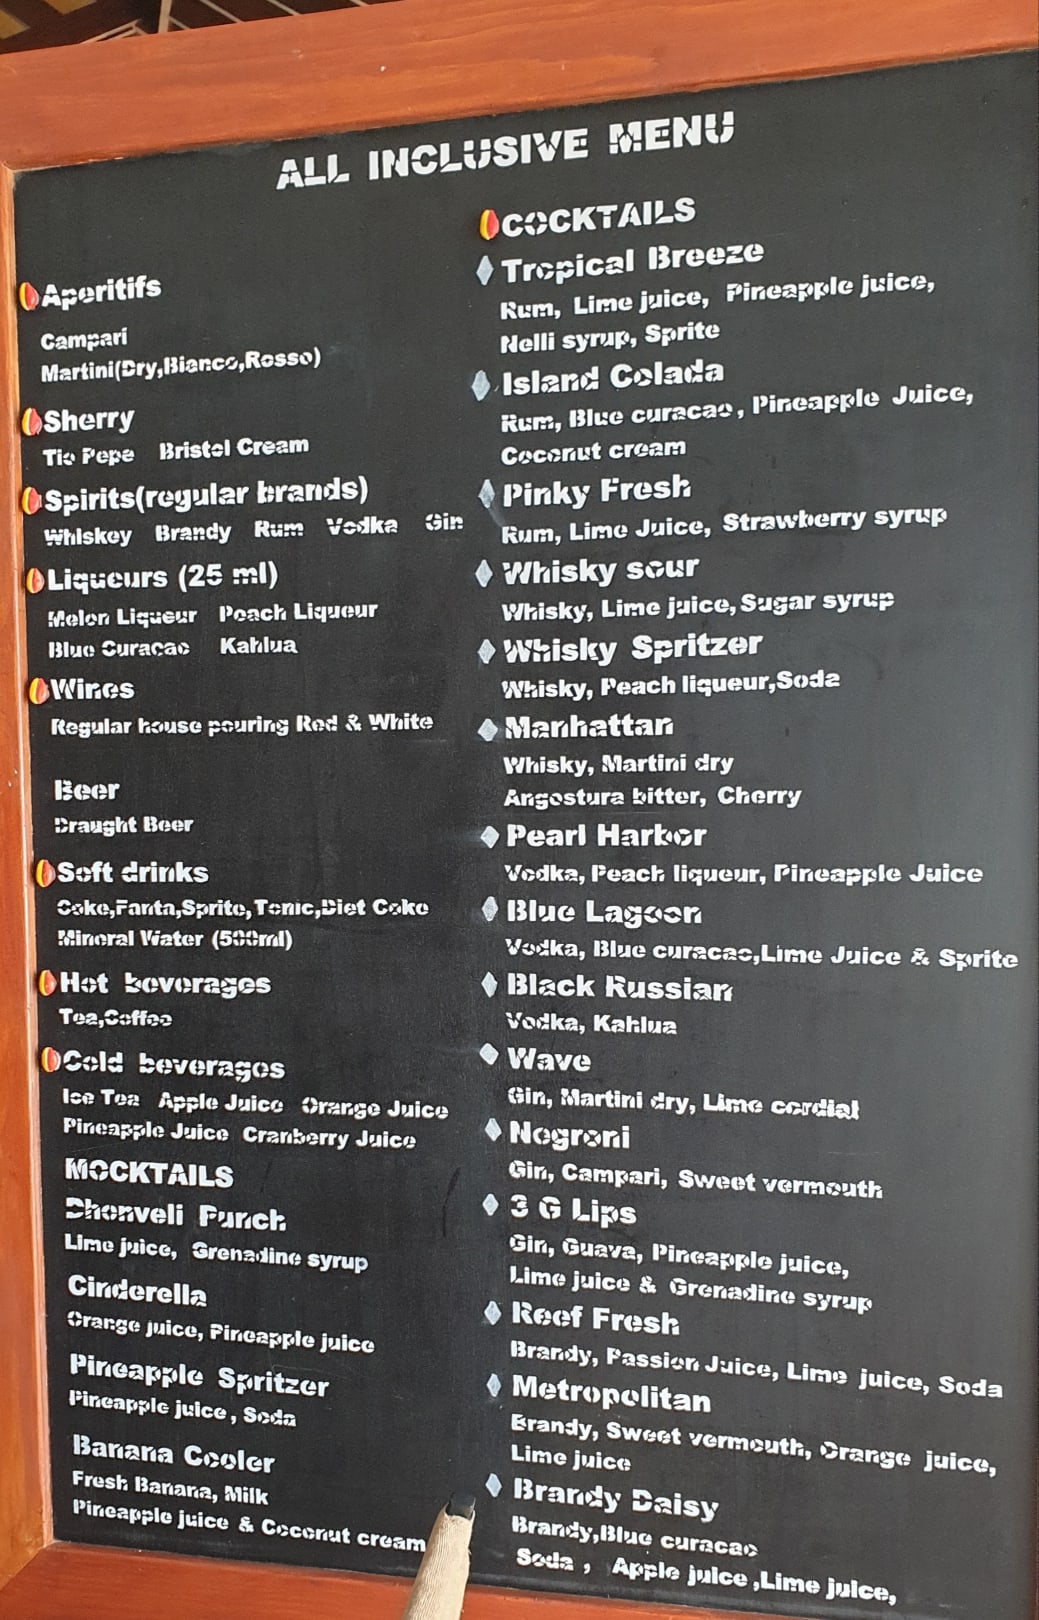 ALL INCLUSIVE MENU
Aperitifs
Campari
Martini(Dry,Bianco,Rosso)
Sherry
Tio Pepe Bristol Cream
Spirits(regular brands)
Whiskey Brandy Rum Vodka Gin
Liqueurs (25 ml)
Melon Liqueur Peach Liqueur
Blue Curacao Kahlua
Wines
Regular house pouring Red & White
Beer
Draught Beer
Soft drinks
Coke,Fanta,Sprite,Tonic,Diet Coke
Mineral Water (500ml)
Hot beverages
Tea,Coffee
Cold beverages
Ice Tea Apple Juice Orange Juice
Pineapple Juice Cranberry Juice
MOCKTAILS
Dhonveli Punch
Lime juice, Grenadine syrup
Cinderella
Orange juice, Pineapple juice
Pineapple Spritzer
Pineapple juice, Soda
Banana Cooler
Fresh Banana, Milk
Pineapple juice & Coconut cream
COCKTAILS
Tropical Breeze
Rum, Lime juice, Pineapple juice,
Nelli syrup, Sprite
Island Colada
Rum, Blue curacao, Pineapple Juice,
Coconut cream
Pinky Fresh
Rum, Lime Juice, Strawberry syrup
Whisky sour
Whisky, Lime juice, Sugar syrup
Whisky Spritzer
Whisky, Peach liqueur,Soda
Manhattan
Whisky, Martini dry
Angostura bitter, Cherry
Pearl Harbor
Vodka, Peach liqueur, Pineapple Juice
Blue Lagoon
Vodka, Blue curacao,Lime Juice & Sprite
Black Russian
Vodka, Kahlua
Wave
Gin, Martini dry, Lime cordial
Negroni
Gin, Campari, Sweet vermouth
3 G Lips
Gin, Guava, Pineapple juice,
Lime juice & Grenadine syrup
Reef Fresh
Brandy, Passion Juice, Lime juice, Soda
Metropolitan
Brandy, Sweet vermouth, Orange juice,
Lime juice
Brandy Daisy
Brandy,Blue curacao
Soda , Apple juice ,Lime juice,